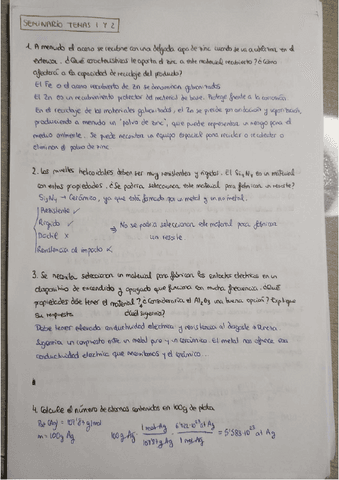 SEMINARIO TEMAS 1 Y 2
1. A menudo el acero se recubre con una delgada capa de zinc cuando se va a utilizar en el
exterior. ¿Qué características le aporta el zinc a este material recubierto? ¿Cómo
afectará a la capacidad de reciclaje del producto?
El Fe o el acero recubierto de Zn se denominan galvanizados.
El Zn es un recubrimiento protector del material de base. Protege frente a la corrosión.
En el reciclaje de los materiales galvanizados, el Zn se pierde por oxidación y vaporización,
produciendo a menudo un "polvo de zinc", que puede representar un riesgo para el
medio ambiente. Se puede necesitar un equipo especial para recuperar o
eliminar el polvo de zinc
2. Los muelles helicoidales deben ser muy resistentes y rígidos. El Si3N4 es un material
con estas propiedades. ¿Se podría seleccionar este material para fabricar un resorte?
Si3N4 → Cerámico, ya que está formado por un metal y un no metal.
Resistente ✓
Rígido ✓
Dúctil x
Resistencia al impacto x
⇒ No se podría seleccionar este material para fabricar
un resorte.
3. Se necesita seleccionar un material para fabricar los contactos eléctricos en un
dispositivo de encendido y apagado que funciona con mucha frecuencia. ¿Qué
propiedades debe tener el material? ¿Consideraría el Al2O3 una buena opción? Explique
su respuesta. ¿Cuál sugeriría?
Debe tener elevada conductividad eléctrica y resistencia al desgaste y dureza
Sugeriría un compuesto entre un metal puro y un cerámico. El metal nos ofrece esa
conductividad eléctrica que necesitamos y el cerámico
4. Calcule el número de átomos contenidos en 100g de plata
m = 100g Ag